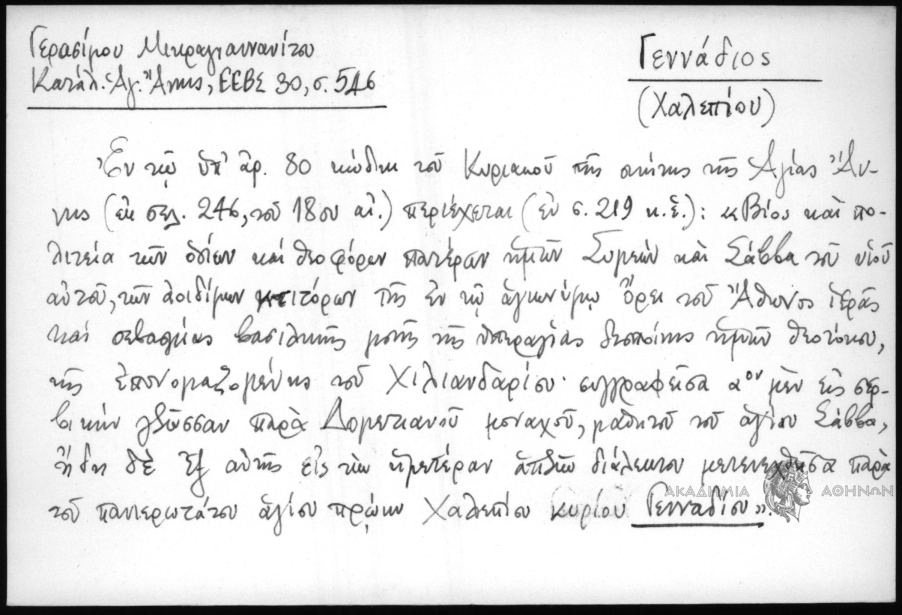 Γερασίμου Μικραγιαννανίτου
Κατάλ. Ἁγ. Ἄννης, ΕΕΒΣ 30, σ. 546
Γεννάδιος
(Χαλεπίου)
Ἐν τῷ ὑπ' ἀρ. 80 κώδικι τοῦ Κυριακοῦ τῆς σκήτης τῆς Ἁγίας Ἄν-
νης (ἐκ σελ. 246, τοῦ 18ου αἰ.) περιέχεται (ἐν σ. 219 κ.ἑ.): «Βίος καὶ πο-
λιτεία τῶν ὁσίων καὶ θεοφόρων πατέρων ἡμῶν Συμεὼν καὶ Σάββα τοῦ υἱοῦ
αὐτοῦ, τῶν ἀοιδίμων κτιτόρων τῆς ἐν τῷ ἁγιωνύμῳ Ὄρει τοῦ Ἄθωνος ἱερᾶς
καὶ σεβασμίας βασιλικῆς μονῆς τῆς ὑπεραγίας δεσποίνης ἡμῶν Θεοτόκου,
τῆς ἐπονομαζομένης τοῦ Χιλιανδαρίου· συγγραφεῖσα αον μὲν εἰς σερ-
βικὴν γλῶσσαν παρὰ Δομετιανοῦ μοναχοῦ, μαθητοῦ τοῦ ἁγίου Σάββα,
ἤδη δὲ ἐξ αὐτῆς εἰς τὴν ἡμετέραν ἁπλῶν διάλεκτον μετενεχθεῖσα παρὰ
τοῦ πανιερωτάτου ἁγίου πρώην Χαλεπίου κυρίου Γενναδίου».
ΑΚΑΔΗΜΙΑ ΑΘΗΝΩΝ